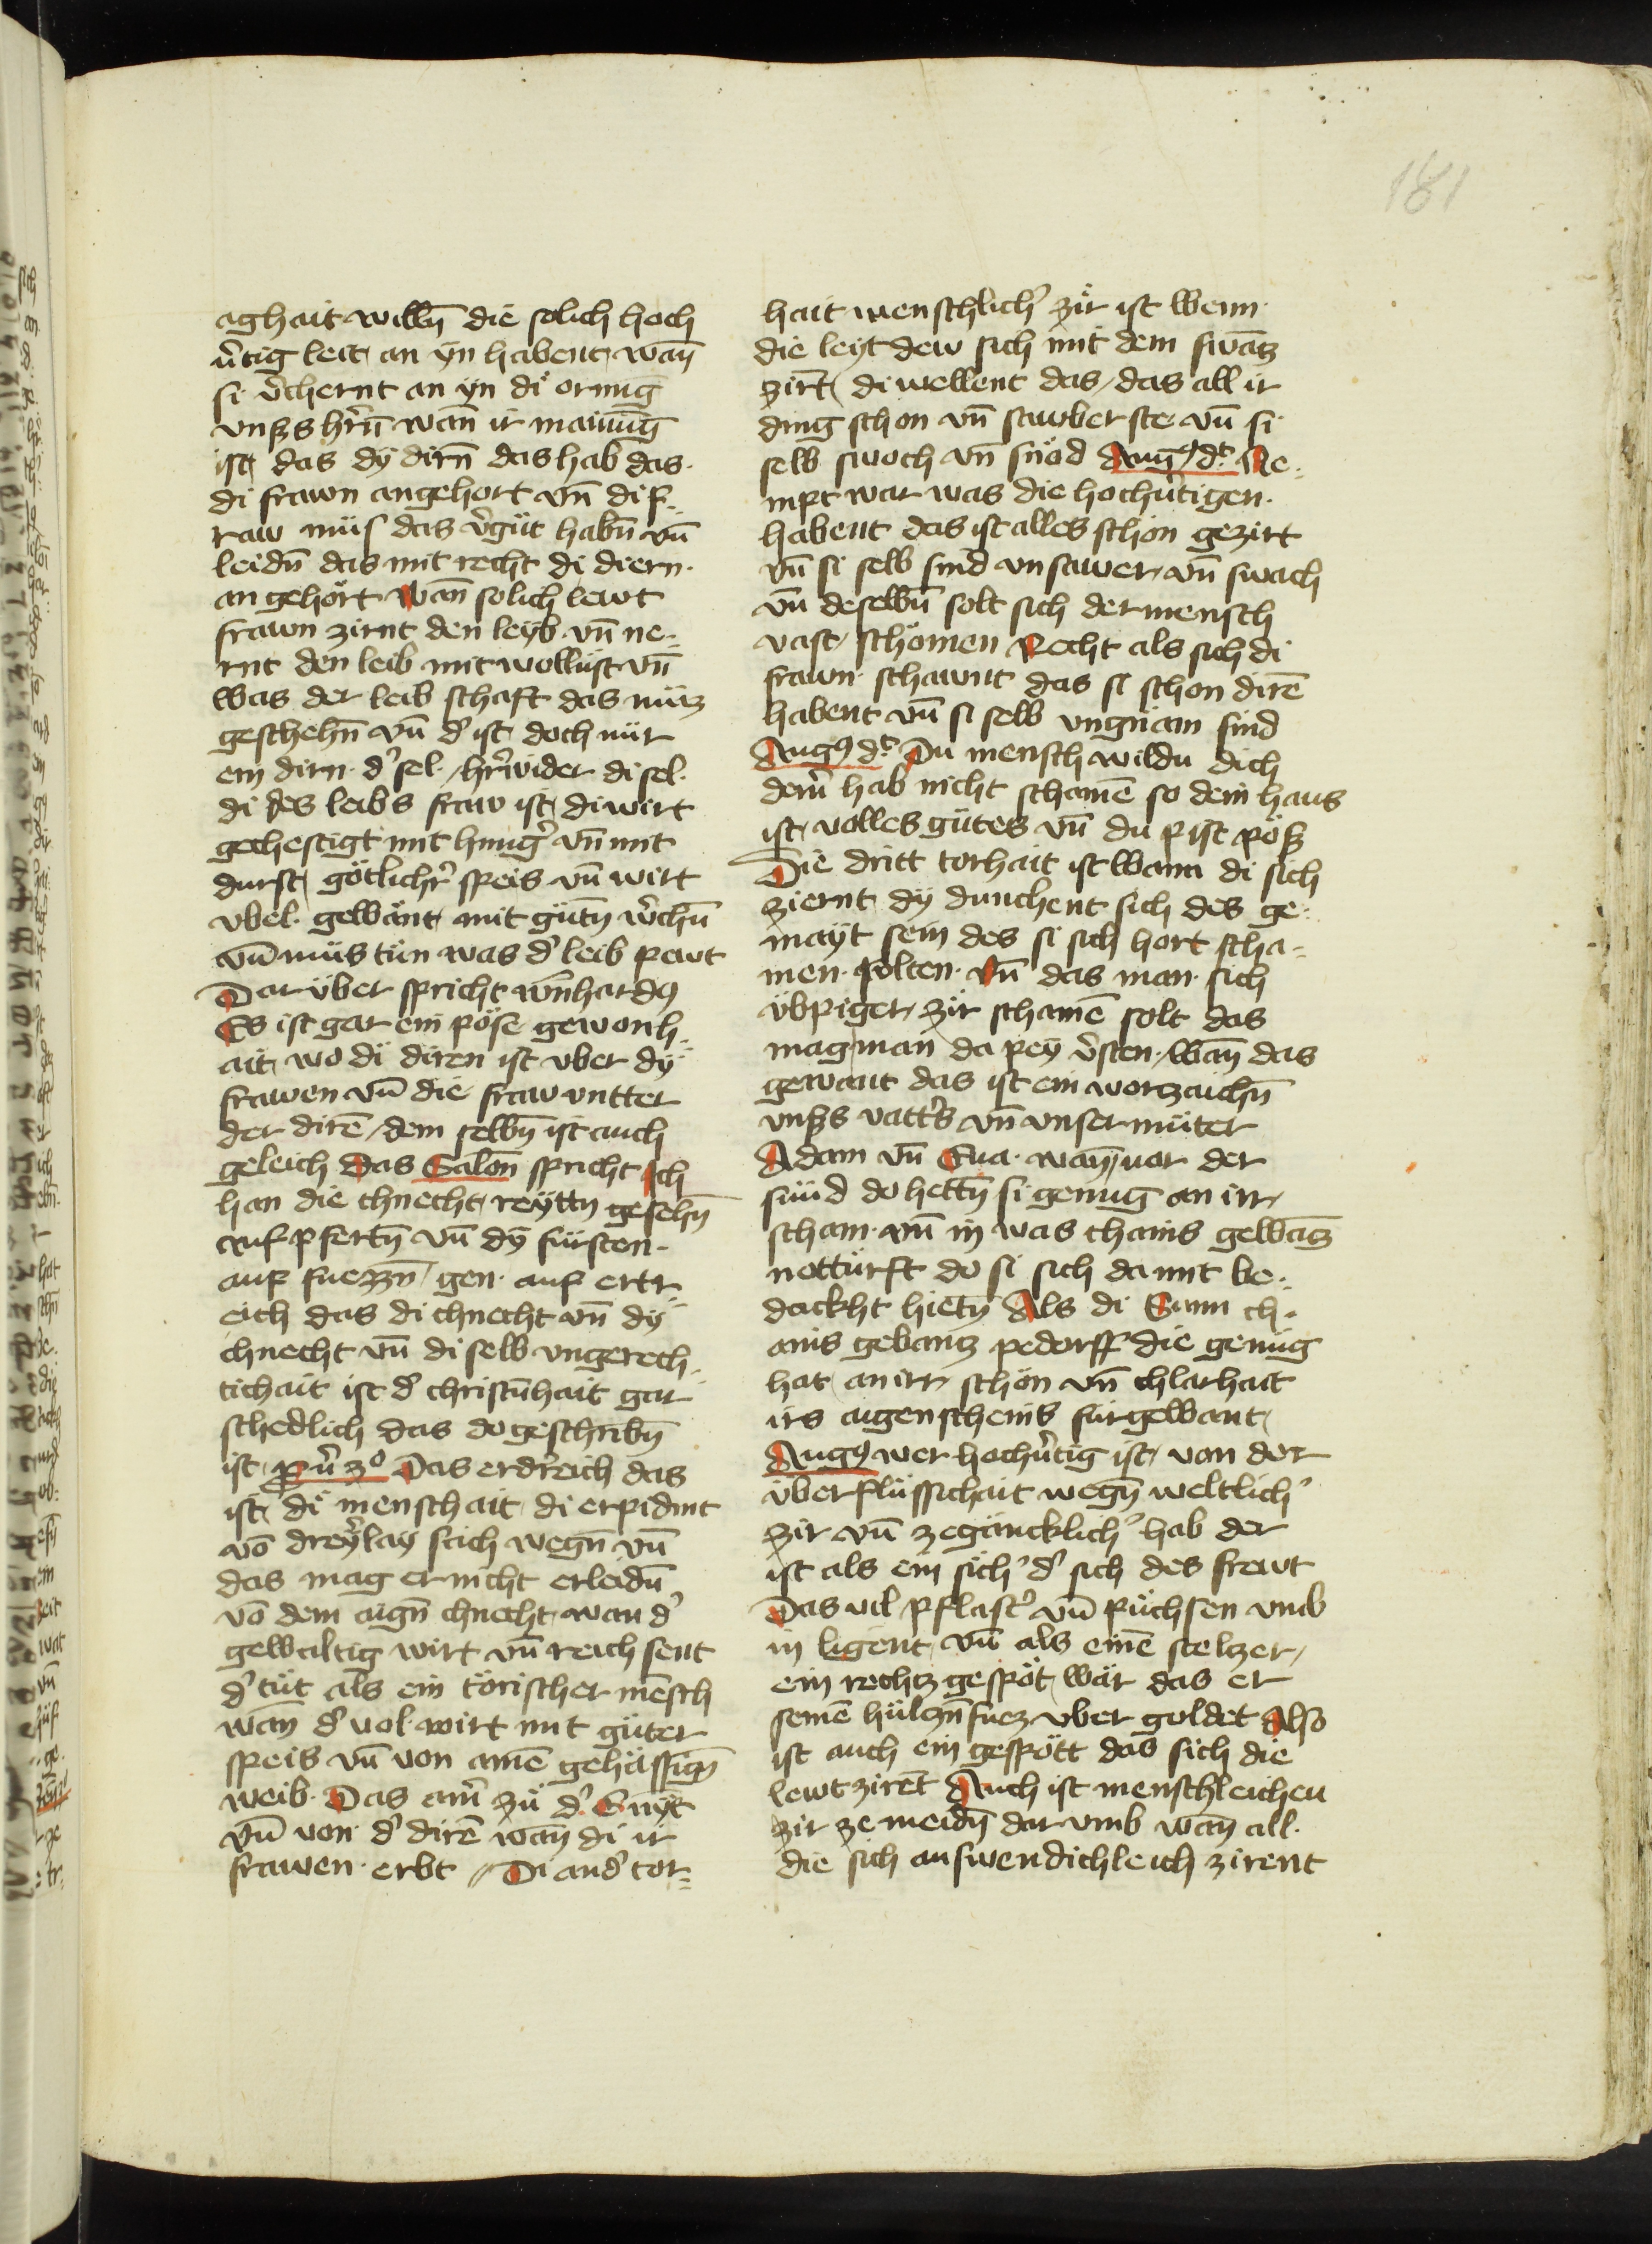 181
aghait willn̄ die solich hoch
v̉tig leit an ÿn habent wan̄
si v̉chernt an ÿn di ornūg
vnsʒs hr̉n̄ wan̄ ir mainūg
ist das dÿ dirn̄ das hab das
di frawn angehort vn̄ di f-
raw müs das v̉güt habn̄ vn̄
leidn̄ das mit recht di diern
an gehört Wan̄ solich lewt
frawn zirnt den leÿb vn̄ ne-
rnt den leib mit wollust vn̄
was der leib schaft das müz
geschehn̄ vn̄ dʼ ist doch nür
ein dirn dʼ sel hr̉wider di sel
di des leibs fraw ist di wirt
gechestigt mit hungʼ vn̄ mit
durst götlichr̉ speis vn̄ wirt
vbel gewänt mit gütn̄ v̉chn̄
vn̄ müs tün was dʼ leib pewt
Dar über spricht wn̄hardꝰ
Es ist gar ein pöse gewonh-
ait wo di diren ist vber dÿ
frawen vn̄ die fraw vntter
der dirē dem selbn̄ ist auch
geleich Das Salōn spricht Ich
han die chnecht reÿttn̄ gesehn̄
auf pfertn̄ vn̄ dÿ fürsten
auf fuezzn̄ gen auf ertr-
eich das di chnecht vn̄ dÿ
chnecht vn̄ di selb vngerech-
tichait ist dʼ christn̄hait gar
schedlich das do geschribn̄
ist pv̉ 3º Das erdr̉eich das
ist di menschait di erpidmt
vō dreÿlaÿ sach wegn̄ vn̄
das mag er nicht erleidn̄
vō dem aign̄ chnecht wan dʼ
gewaltig wirt vn̄ reich sent
dʼ tüt als ein törischer mēsch
wan̄ dʼ uol wirt mit güter
speis vn̄ von ainē gehässign̄
weib Das am̉ zü dʼ E nÿt
vn̄ von dʼ dirē wan̄ di ir
frawen erbt Di andʼ tor-
hait menschlichʼ zir ist wenn
die leÿt dew sich mit dem swācz
zirt̄ di wellent das das all ir
ding schon vn̄ sauber ste vn̄ si
selb swoch vn̄ snöd Augꝰ dt̄ Ne-
mpt war was die hochv̉tigen
habent das ist alles schon gezirt
vn̄ si selb sind vnsawer vn̄ swach
vn̄ deselbn̄ solt sich der mensch
vast schömen Recht als sich di
frawn schawnt das si schon dirē
habent vn̄ si selb vngnam sind
Augꝰ dt̄ Du mensch wildu dich
dein̉ hab nicht schamē so dein haus
ist volles gütes vn̄ du pist pöß
Die dritt torhait ist wann di sich
ziernt dÿ dunchent sich des ge-
maÿt sein des si sich hort scha-
men solten Vn̄ das man sich
übpiger zir schamē solt das
mag man da peÿ v̉sten wan̄ das
gewant das ist ein worzaichn̄
vnsʒs vattʼs vn̄ vnser müter
Adam vn̄ Eua wan̄ vor der
sünd do hettn̄ si genūg an irr
scham vn̄ in was chains gewācz
nottürft do si sich damit be-
dackht hietn̄ Als di Sunn ch-
ains gebancz pedorff die genüg
hat an irr schön vn̄ chlarhait
irs aigen scheins für gewant
Augꝰ wer hochv̉tig ist von der
überflüssichait wegn̄ weltlichʼ
zir vn̄ zegäncklichʼ hab der
ist als ein sichʼ dʼ sich des frewt
Das vil pflastʼ vn̄ püchsen vmb
in ligent vn̄ als einē stelzer
ein rechtz gespöt wär das er
seinē hülczn̄ fuez vber goldet Also
ist auch ein gespött das sich die
lewt zirēt Auch ist menschleichen
zir ze meidn̄ dar vmb wan̄ all
die sich auswendichleich zirent